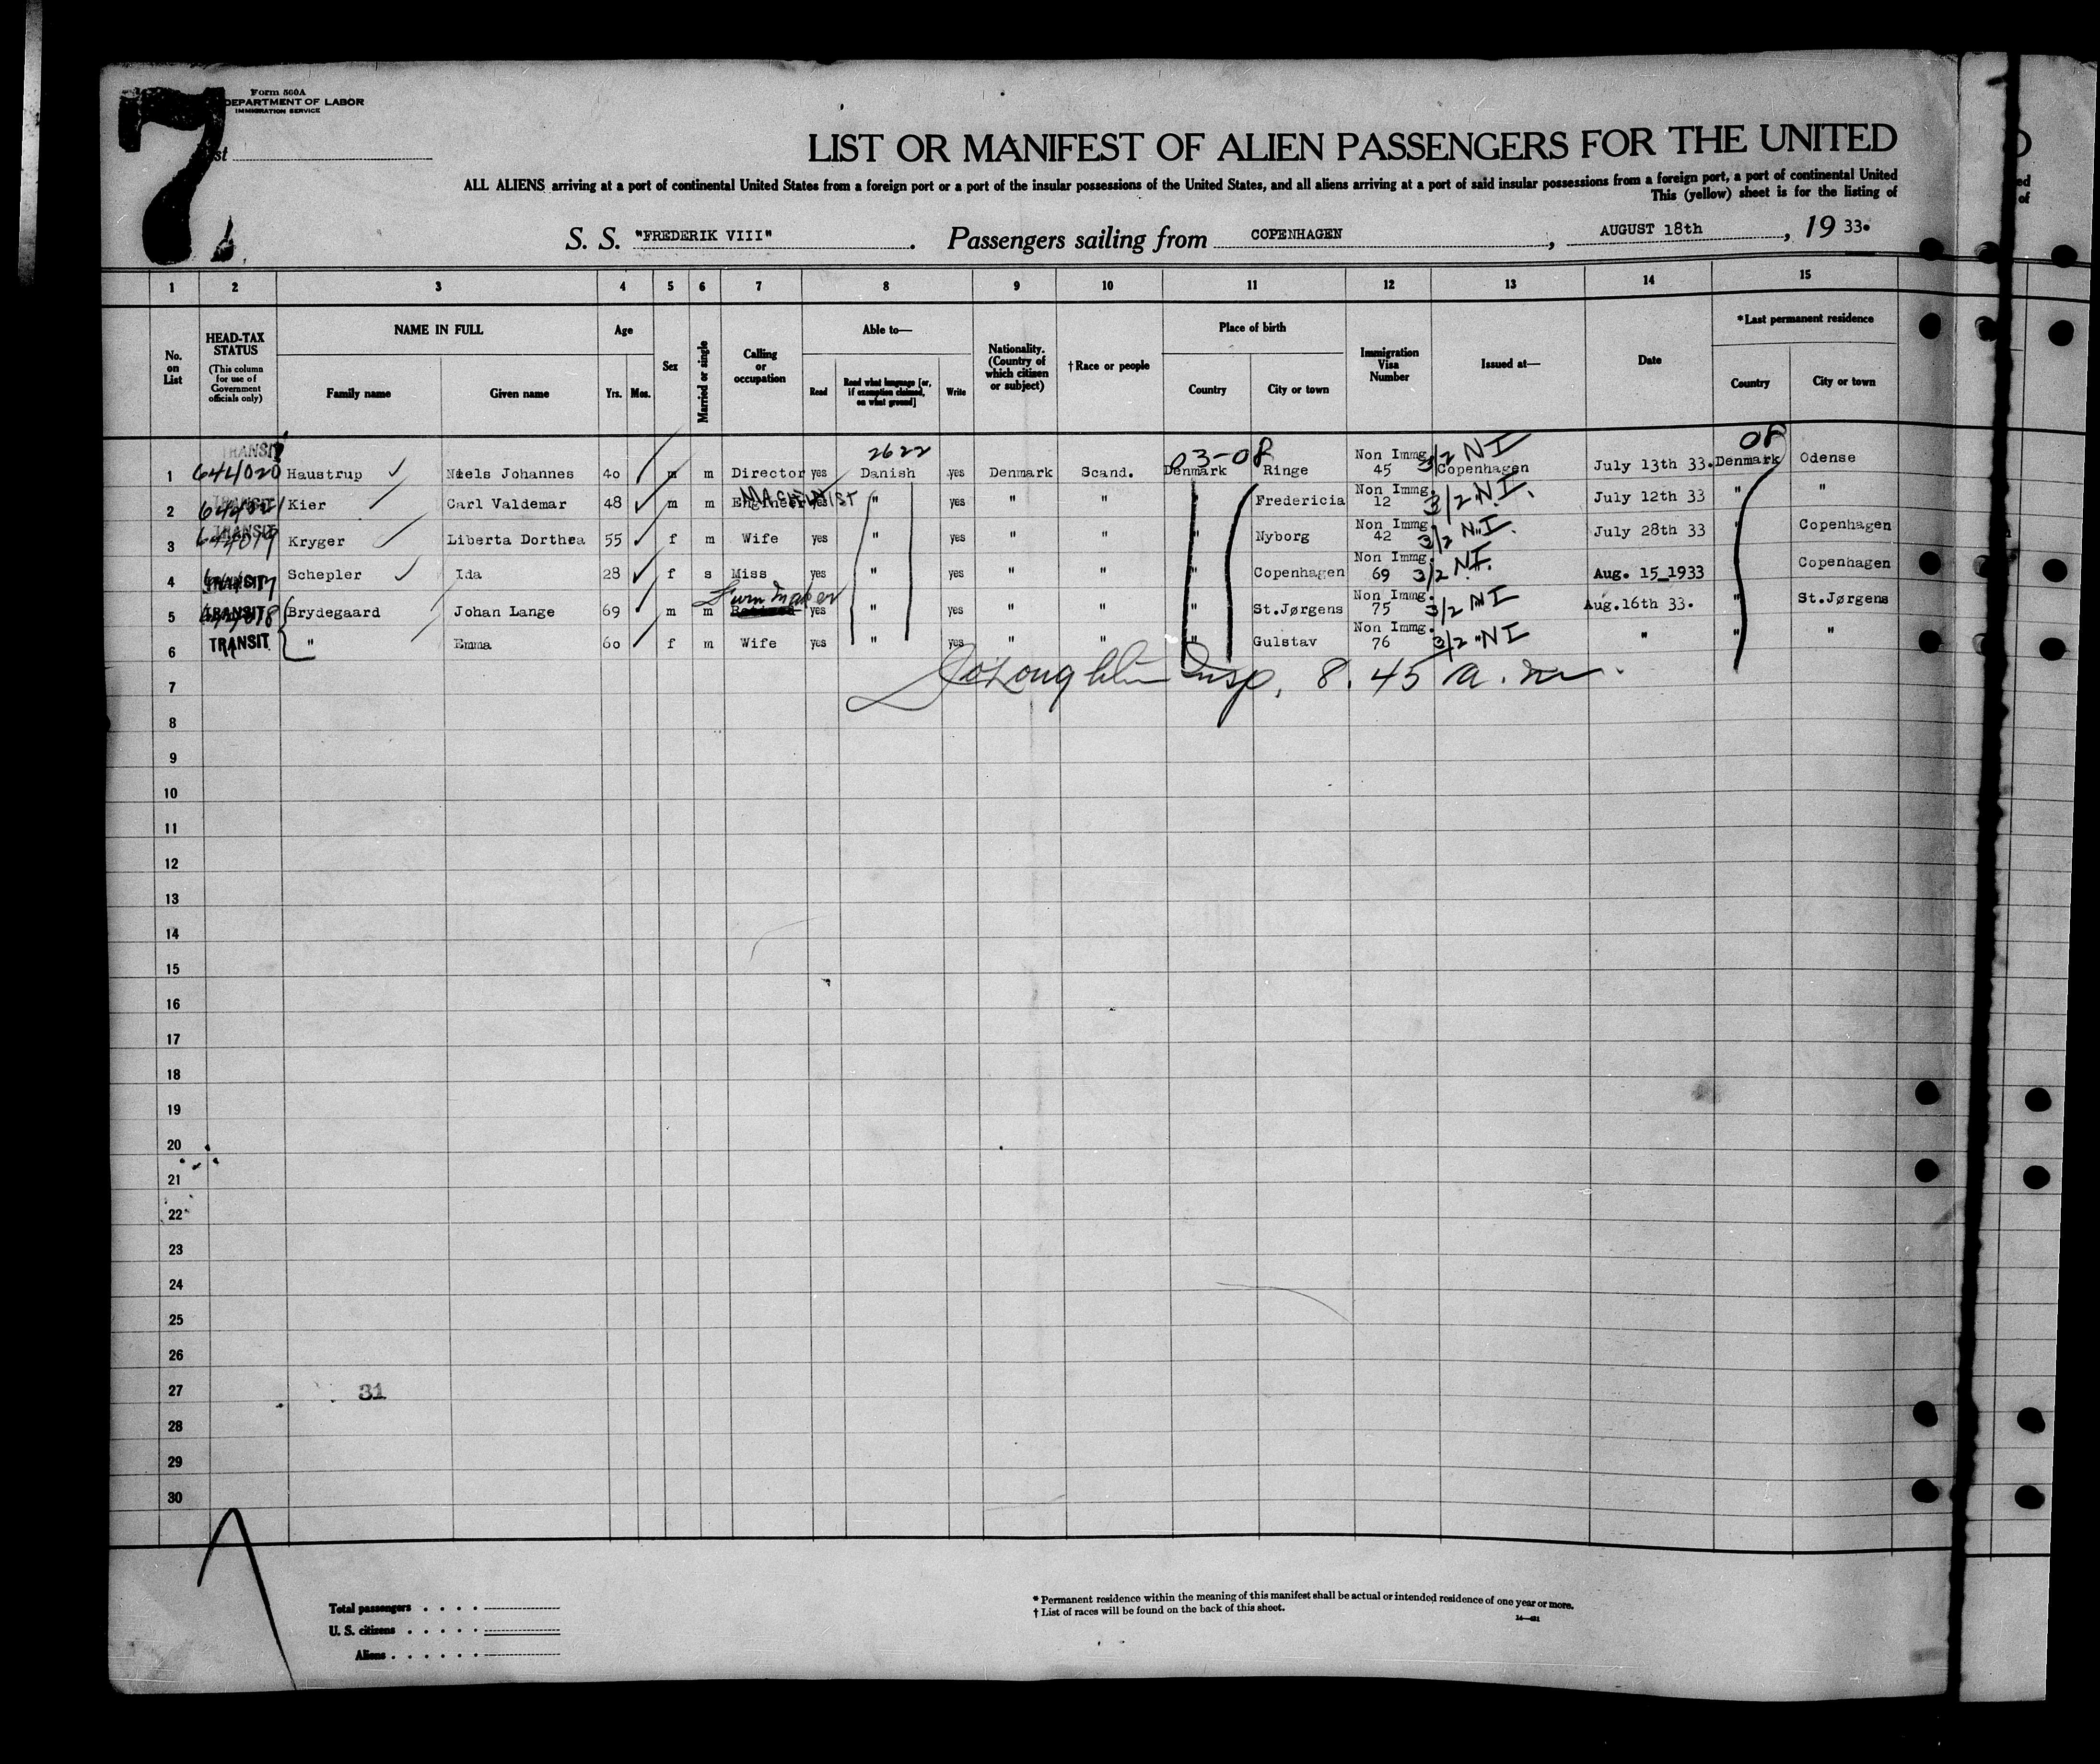 7
Form 500A
DEPARTMENT OF LABOR
IMMIGRATION SERVICE
LIST OR MANIFEST OF ALIEN PASSENGERS FOR THE UNITED
ALL ALIENS arriving at a port of continental United States from a foreign port or a port of the insular possessions of the United States, and all aliens arriving at a port of said insular possessions from a foreign port, a port of continental United
This (yellow) sheet is for the listing of
S. S. "FREDERIK VIII" . Passengers sailing from COPENHAGEN , AUGUST 18th , 19 33.
1 2 3 4 5 6 7 8 9 10 11 12 13 14 15
No. on List
HEAD-TAX STATUS (This column for use of Government officials only)
NAME IN FULL Family name Given name
Age Yrs. Mos.
Sex
Married or single
Calling or occupation
Able to— Read Read what language [or, if exemption claimed, on what ground] Write
Nationality. (Country of which citizen or subject)
†Race or people
Place of birth Country City or town
Immigration Visa Number
Issued at—
Date
*Last permanent residence Country City or town
TRANSIT 2622 03-08 08
1 644020 Haustrup Niels Johannes 40 m m Director yes Danish yes Denmark Scand. Denmark Ringe Non Immg. 45 3/2 NI Copenhagen July 13th 33. Denmark Odense
2 TRANSIT Kier Carl Valdemar 48 m m Engineer MACHINIST yes " yes " " " Fredericia Non Immg. 12 3/2 N.I. July 12th 33 " "
3 TRANSIT 644019 Kryger Liberta Dorthea 55 f m Wife yes " yes " " " Nyborg Non Immg. 42 3/2 N.I. July 28th 33 " Copenhagen
4 TRANSIT Schepler Ida 28 f s Miss yes " yes " " " Copenhagen Non Immg. 69 3/2 NI. Aug. 15_1933 " Copenhagen
5 TRANSIT Brydegaard Johan Lange 69 m m Retired yes " yes " " " St.Jørgens Non Immg. 75 3/2 NI Aug.16th 33. " St.Jørgens
6 TRANSIT " Emma 60 f m Wife yes " yes " " " Gulstav Non Immg. 76 3/2 NI " " "
Insp. 8.45 a.m.
7
8
9
10
11
12
13
14
15
16
17
18
19
20
21
22
23
24
25
26
27 31
28
29
30
Total passengers
U. S. citizens
Aliens
* Permanent residence within the meaning of this manifest shall be actual or intended residence of one year or more.
† List of races will be found on the back of this sheet.